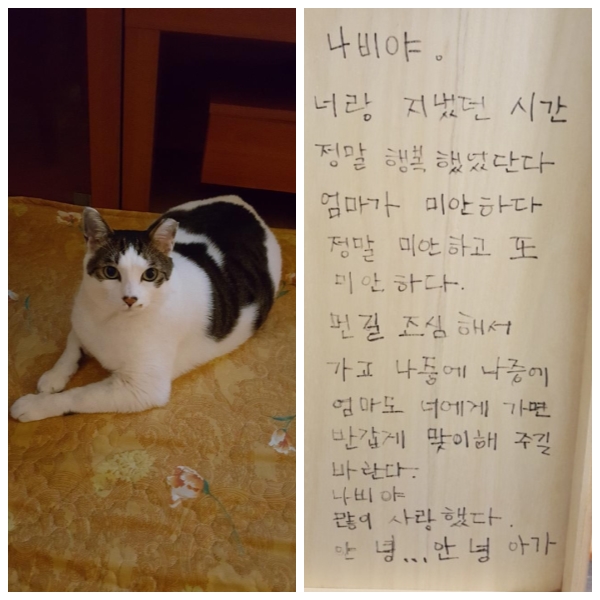 나비야.
너랑 지냈던 시간
정말 행복했었단다
엄마가 미안하다
정말 미안하고 또
미안하다.
먼길 조심해서
가고 나중에 나중에
엄마도 너에게 가면
반갑게 맞이해 주길
바란다.
나비야
많이 사랑했다.
안녕...안녕 아가